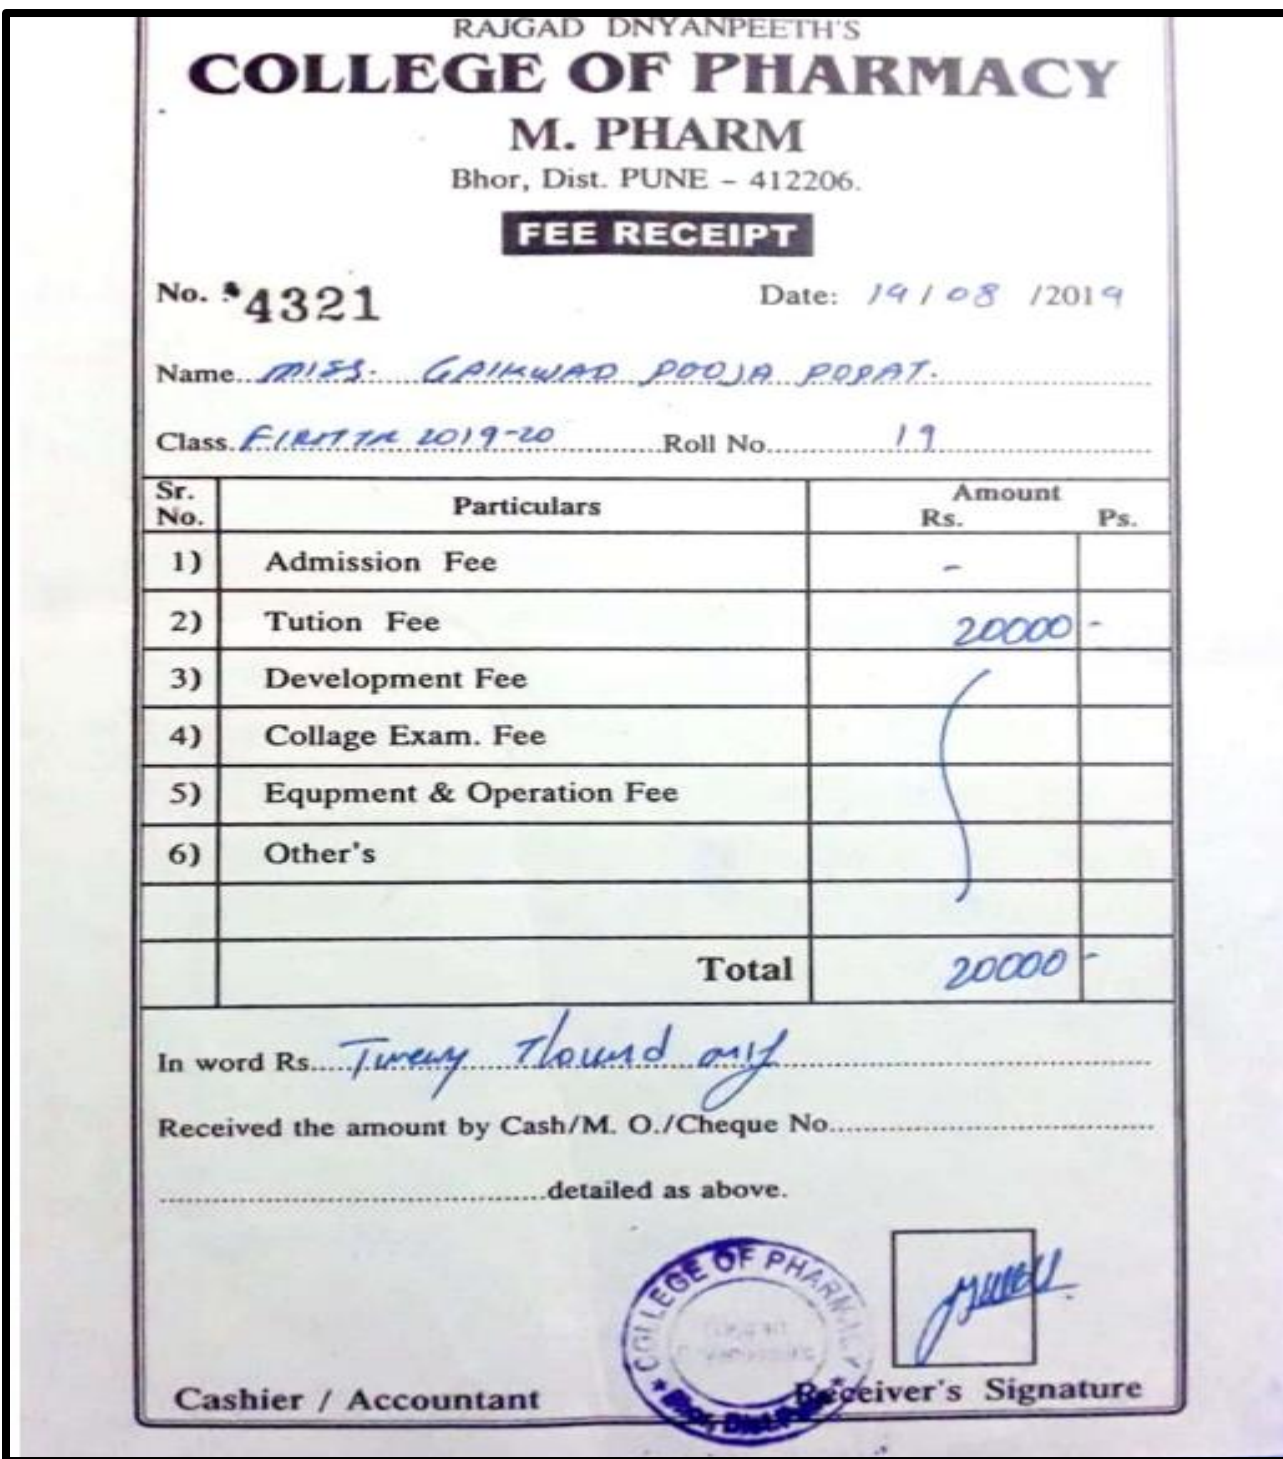 RAJGAD DNYANPEETH'S
COLLEGE OF PHARMACY
M. PHARM
Bhor, Dist. PUNE - 412206.
FEE RECEIPT
No. 4321 Date: 19/08/2019
Name MISS. GAIKWAD POOJA POPAT.
Class 2019-20 Roll No. 19
Sr. No. Particulars Amount Rs. Ps.
1) Admission Fee -
2) Tution Fee 20000 -
3) Development Fee
4) Collage Exam. Fee
5) Equpment & Operation Fee
6) Other's
Total 20000 -
In word Rs. Twenty Thousand only
Received the amount by Cash/M. O./Cheque No.
detailed as above.
COLLEGE OF PHARMACY
Bhor, Dist.
Cashier / Accountant Receiver's Signature